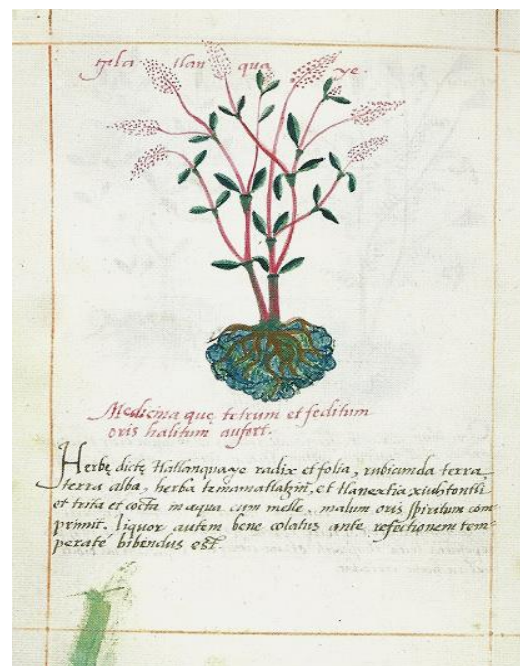 tzla tlan qua ye.
Medicina quę tetrum et feditum
oris halitum aufert.
Herbę dictę tlatlanquaye radix et folia, rubicunda terra
terra alba, herba temamatlatzin, et tlanextia xiuhtontli
et trita et cocta in aqua cum melle, malum oris spiritum com
primit. liquor autem bene colatus ante refectionem tem-
peraté bibendus est.